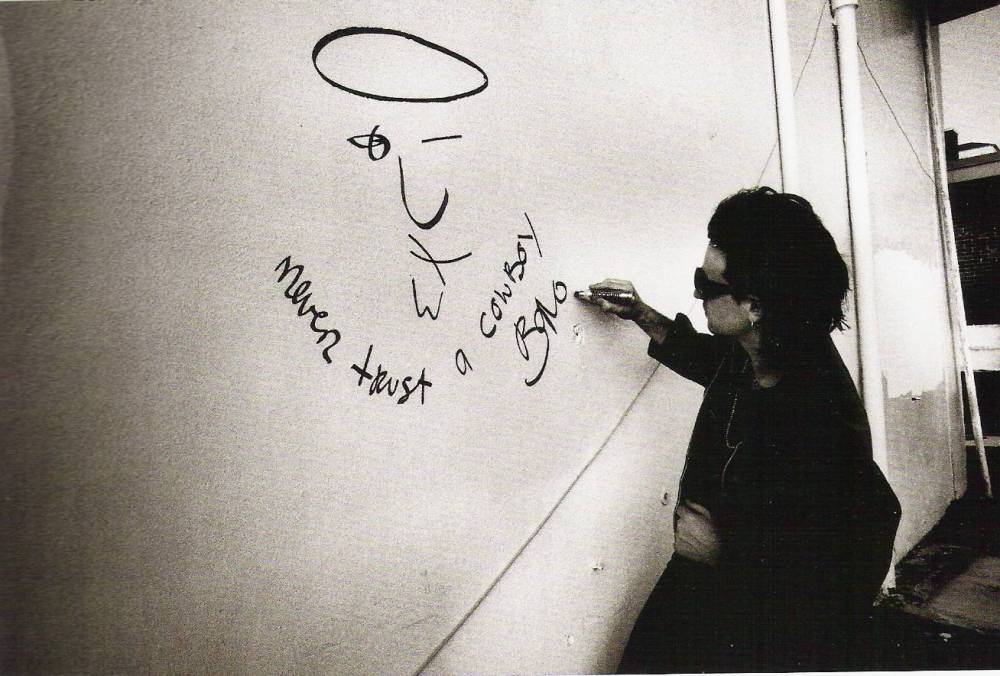 never trust a COWBOY
BONO